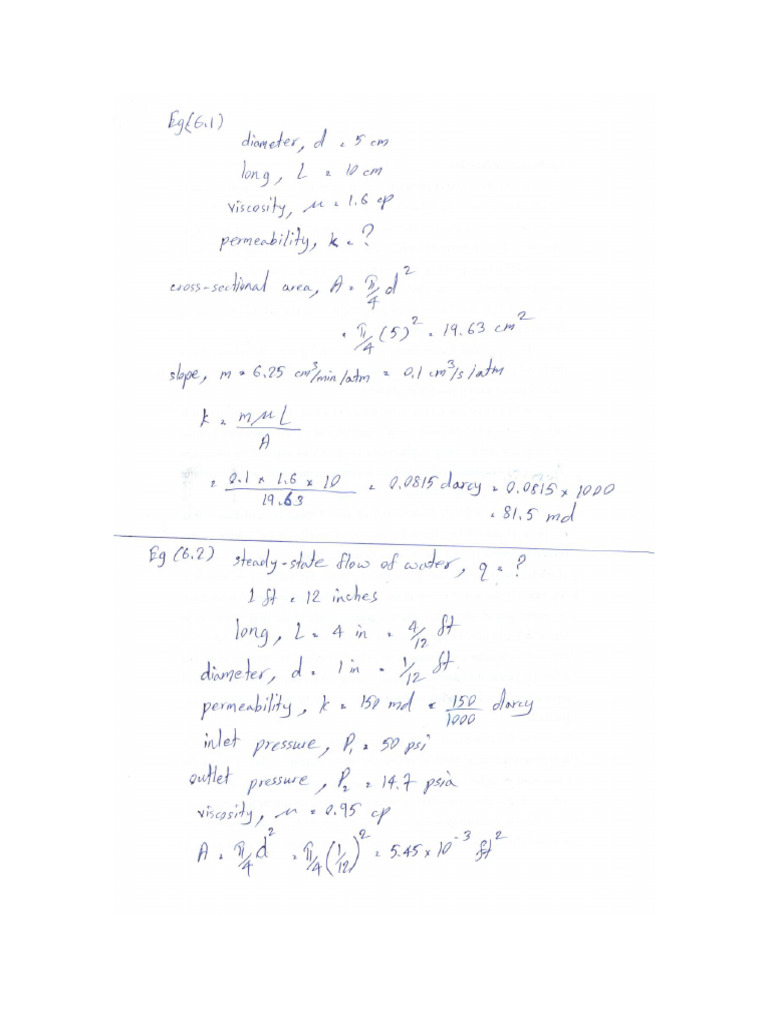 Eg(6.1)
diameter, d = 5 cm
long, L = 10 cm
viscosity, μ = 1.6 cp
permeability, k = ?
cross-sectional area, A = π/4 d²
= π/4 (5)² = 19.63 cm²
slope, m = 6.25 cm³/min/atm = 0.1 cm³/s/atm
k = mμL / A
= 0.1 × 1.6 × 10 / 19.63 = 0.0815 darcy = 0.0815 × 1000
= 81.5 md
Eg (6.2) steady-state flow of water, q = ?
1 ft = 12 inches
long, L = 4 in = 4/12 ft
diameter, d = 1 in = 1/12 ft.
permeability, k = 150 md = 150/1000 darcy
inlet pressure, P₁ = 50 psi
outlet pressure, P₂ = 14.7 psia
viscosity, μ = 0.95 cp
A = π/4 d² = π/4 (1/12)² = 5.45 × 10⁻³ ft²